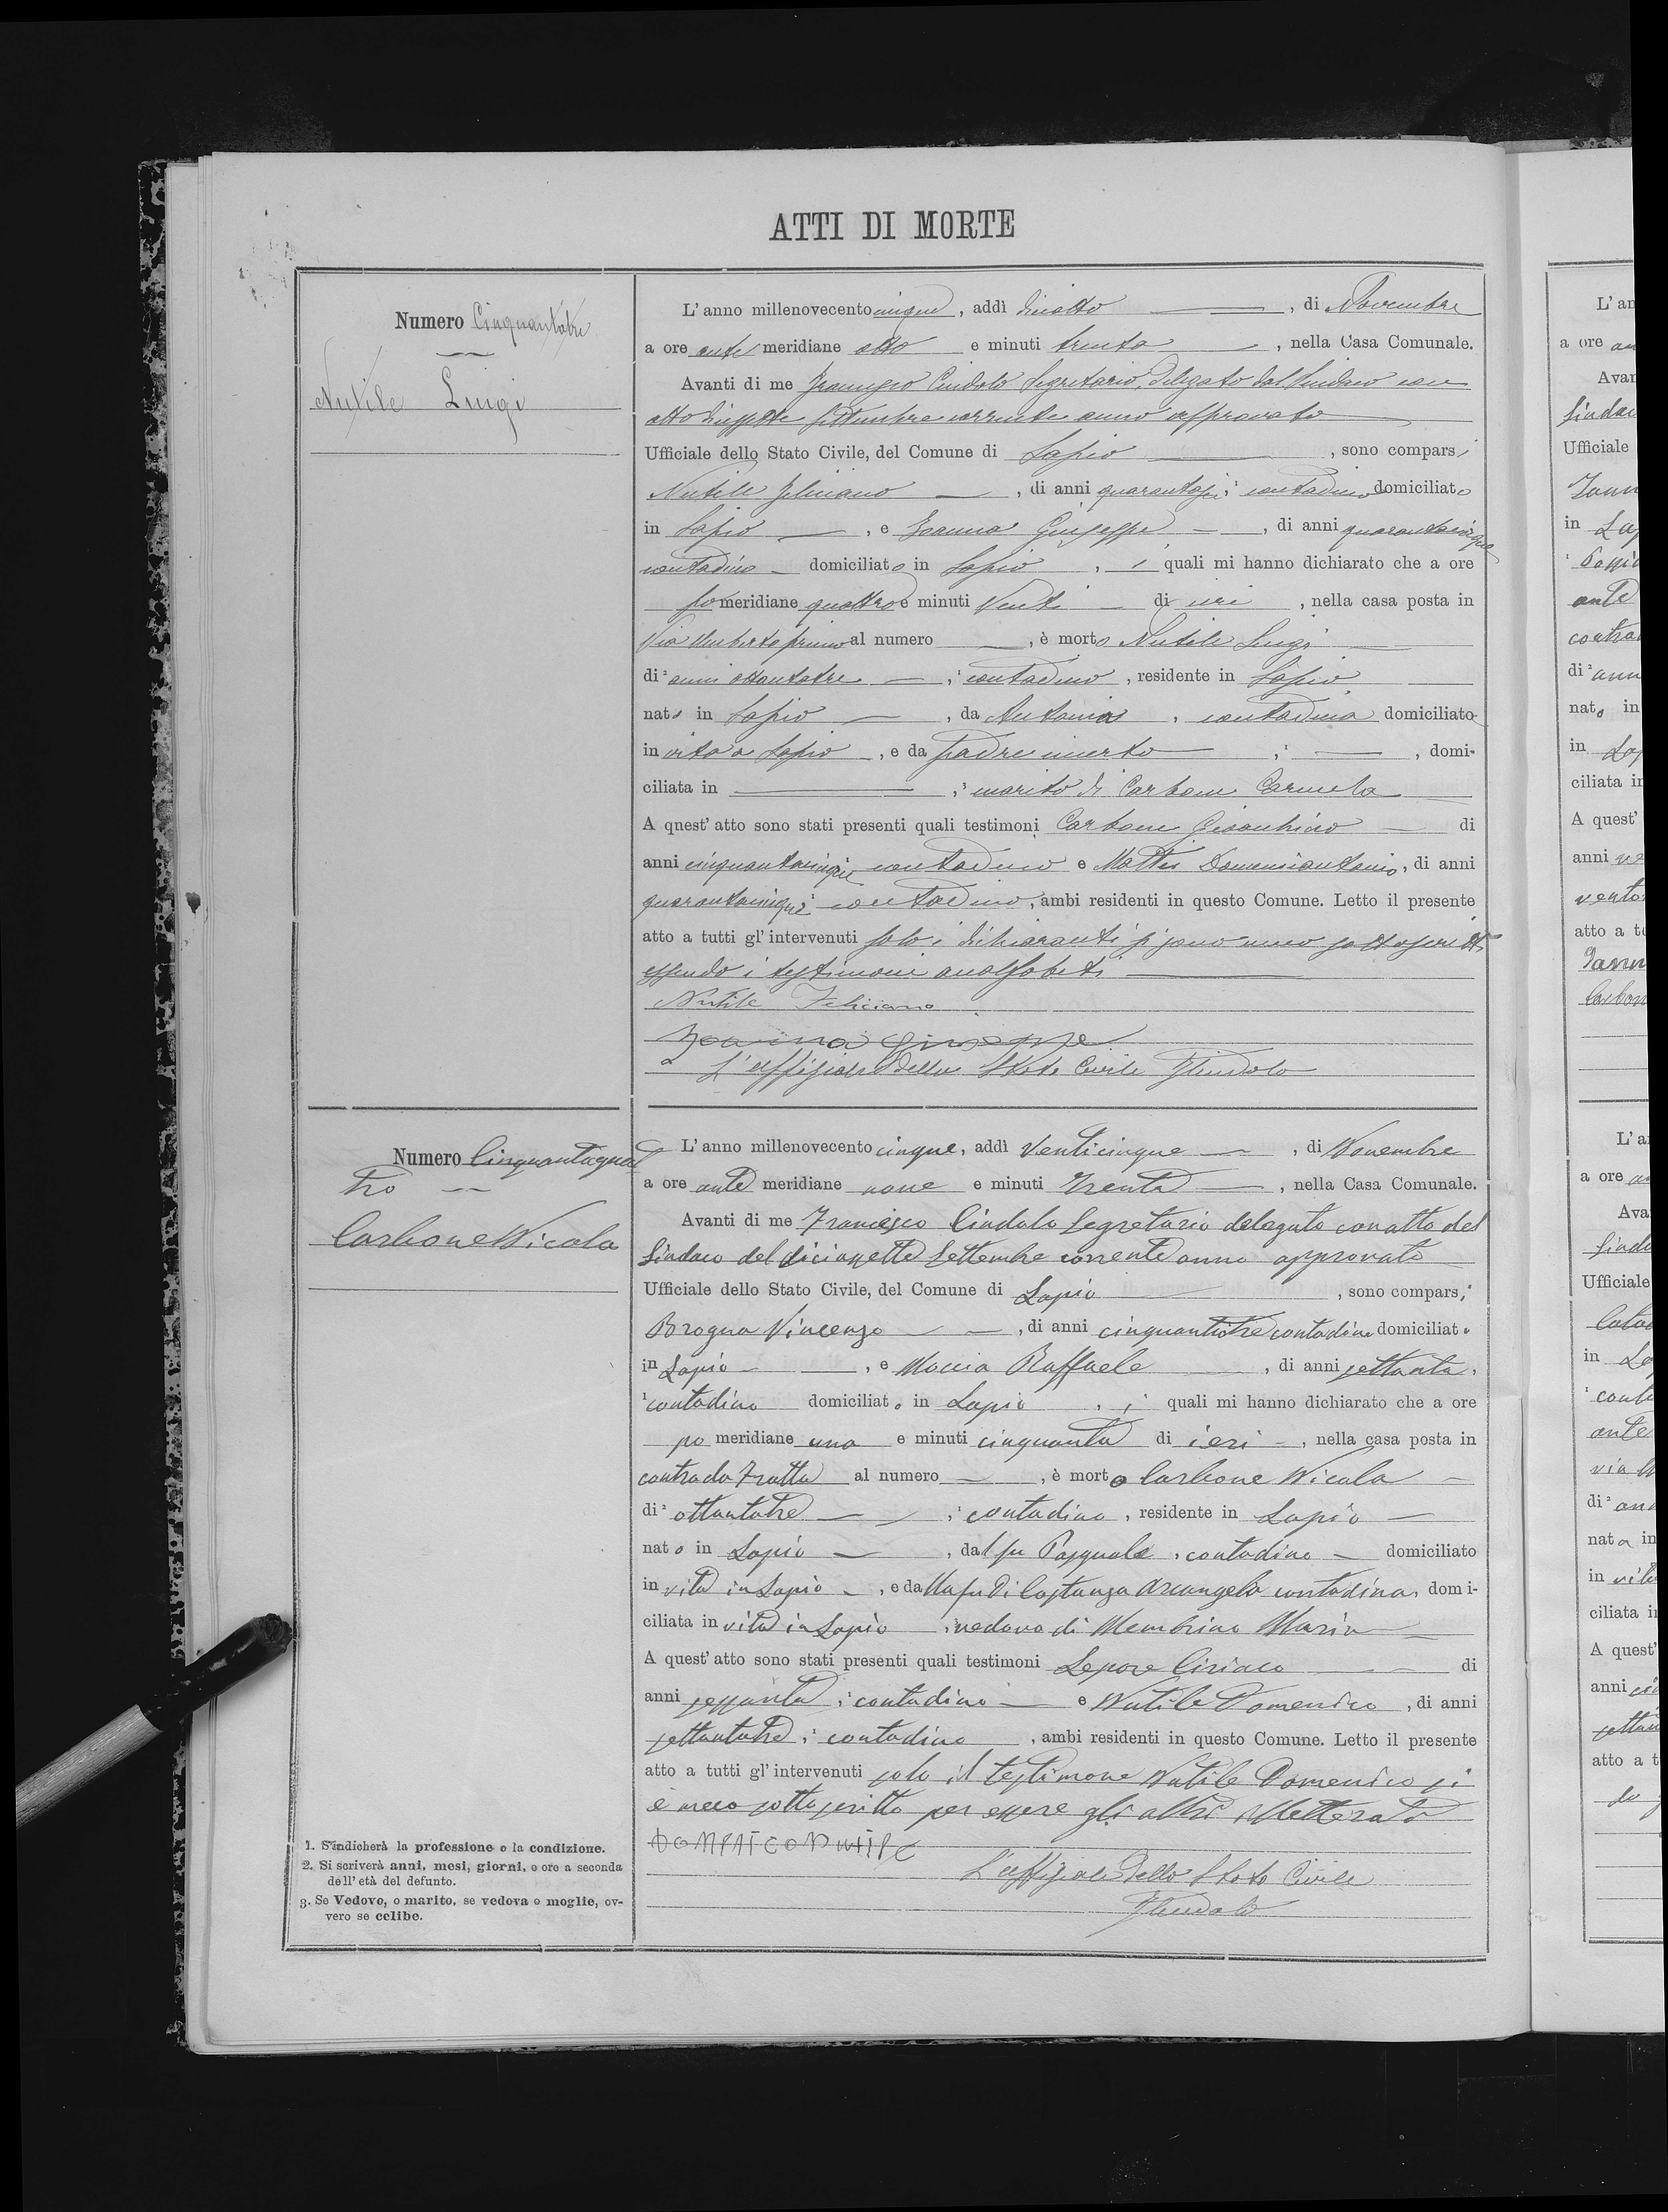 ATTI DI MORTE
Numero Cinquantatre
Nutile Luigi
L'anno millenovecento cinque, addì diciotto, di Novembre
a ore ante meridiane otto e minuti trenta, nella Casa Comunale.
Avanti di me Francesco Cindolo Segretario, delegato dal Sindaco con
atto diciassette Settembre corrente anno approvato
Ufficiale dello Stato Civile, del Comune di Lapio, sono comparsi
Nutile Feliciano, di anni quarantasei, contadino domiciliato
in Lapio, e Giuseppe, di anni quarantacinque
contadino domiciliato in Lapio, i quali mi hanno dichiarato che a ore
pomeridiane quattro e minuti venti di ieri, nella casa posta in
Via Umberto primo al numero, è morto Nutile Luigi
di² anni ottantatre, ¹ contadino, residente in Lapio
nato in Lapio, da Antonia, contadina domiciliato
in vita a Lapio, e da padre incerto, ¹, domi-
ciliata in, ³ marito di Carbone Carmela
A quest' atto sono stati presenti quali testimoni Carbone Gioacchino di
anni cinquantacinque contadino e Mattis Domenicantonio, di anni
quarantacinque ¹ contadino, ambi residenti in questo Comune. Letto il presente
atto a tutti gl'intervenuti solo i dichiaranti si sono meco sottoscritti
essendo i testimoni analfabeti
Nutile Feliciano
Giuseppe
L'uffiziale dello Stato Civile FCindolo
Numero Cinquantaquat
tro
Carbone Nicola
L'anno millenovecento cinque, addì venticinque, di Novembre
a ore ante meridiane nove e minuti trenta, nella Casa Comunale.
Avanti di me Francesco Cindolo Segretario delegato con atto del
Sindaco del diciassette Settembre corrente anno approvato
Ufficiale dello Stato Civile, del Comune di Lapio, sono comparsi
Brogna Vincenzo, di anni cinquantatre contadino domiciliato
in Lapio, e Moccia Raffaele, di anni settanta,
¹ contadino domiciliato in Lapio, i quali mi hanno dichiarato che a ore
po meridiane una e minuti cinquanta di ieri, nella casa posta in
contrada Fratta al numero, è morto Carbone Nicola
di² ottantatre, ¹ contadino, residente in Lapio
nato in Lapio, dal fu Pasquale, contadino domiciliato
in vita in Lapio, e dalla fu Di Costanza Arcangela contadina, domi-
ciliata in vita in Lapio, vedovo di Membrino Maria
A quest' atto sono stati presenti quali testimoni Lepore Ciriaco di
anni sessanta, ¹ contadino e Nutile Domenico, di anni
settantatre, ¹ contadino, ambi residenti in questo Comune. Letto il presente
atto a tutti gl'intervenuti solo il testimone Nutile Domenico si
è meco sottoscritto per essere gli altri illetterati
L'uffiziale dello Stato Civile
FCindolo
1. S'indicherà la professione o la condizione.
2. Si scriverà anni, mesi, giorni, o ore a seconda
dell' età del defunto.
3. Se Vedovo, o marito, se vedova o moglie, ov-
vero se celibe.